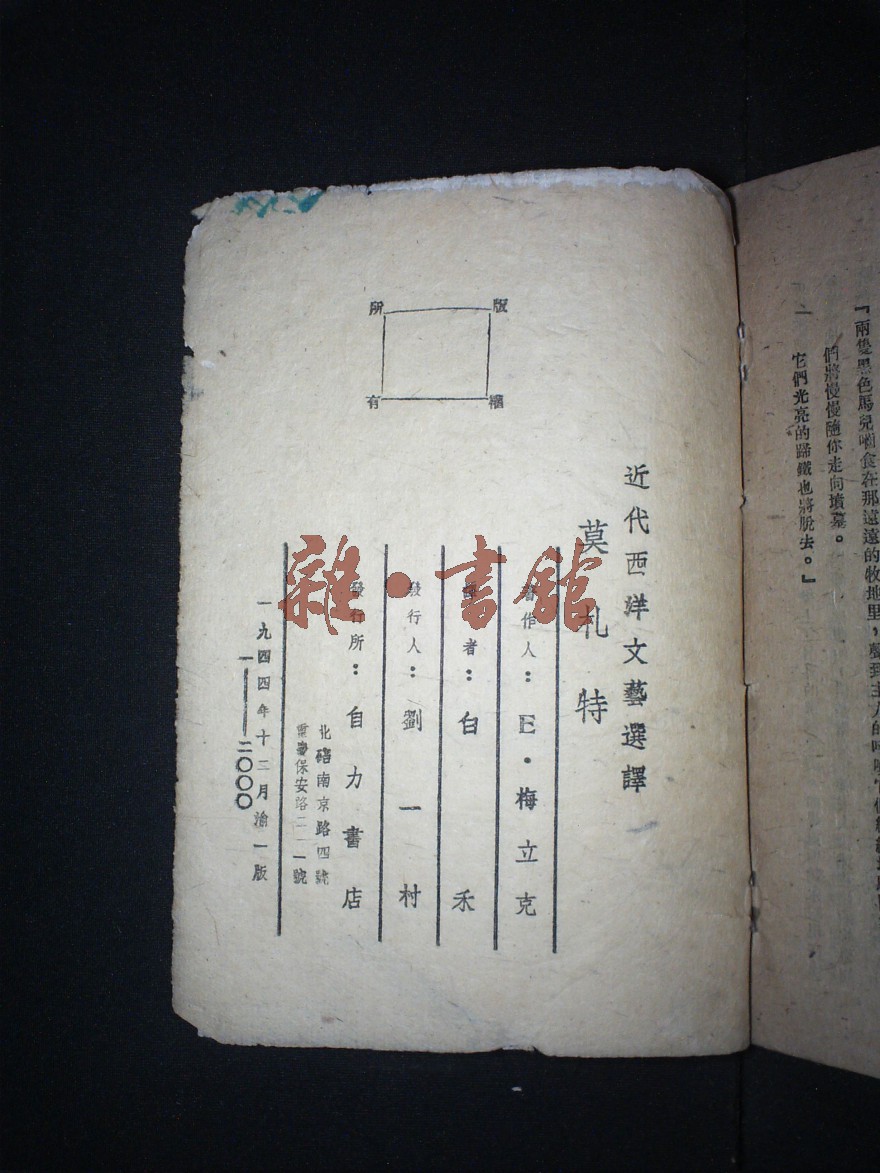 版權所有
近代西洋文藝選譯
莫札特
著作人：E·梅立克
譯者：白禾
發行人：劉一村
發行所：自力書店
北碚南京路四號
重慶保安路二一一號
一九四四年十二月渝一版
一——二〇〇〇
雜·書館
『兩隻黑色馬兒嚙食在那遠遠的牧地里，
們將慢慢隨你走向墳墓。
它們光亮的蹄鐵也將脫去。』